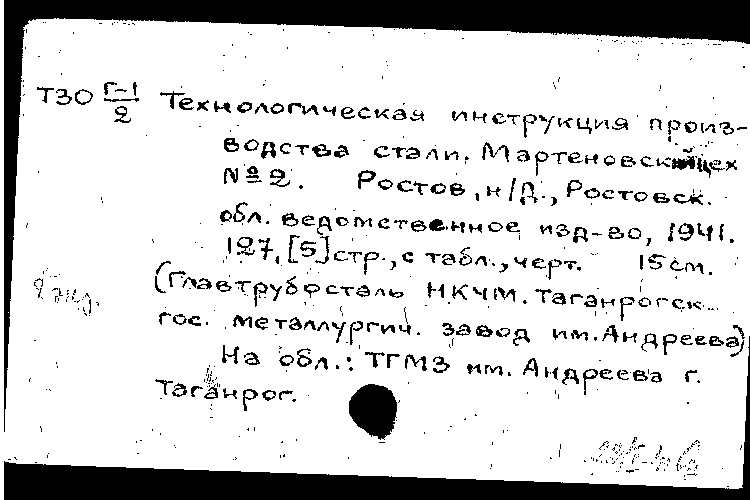 ТЗО Г-1/2 Технологическая инструкция произ-
водства стали. Мартеновский цех
№2. Ростов, н/Д., Ростовск.
обл. ведомственное изд-во, 1941.
127, [5] стр., с табл., черт. 15 см.
(Главтрубосталь НКЧМ. Таганрогск.
2 экз.
гос. металлургич. завод им. Андреева)
На обл.: ТГМЗ им. Андреева г.
Таганрог.